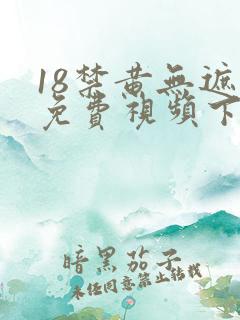 18禁黄無遮
免費視頻下
暗黑茄子
未任同意禁止転載